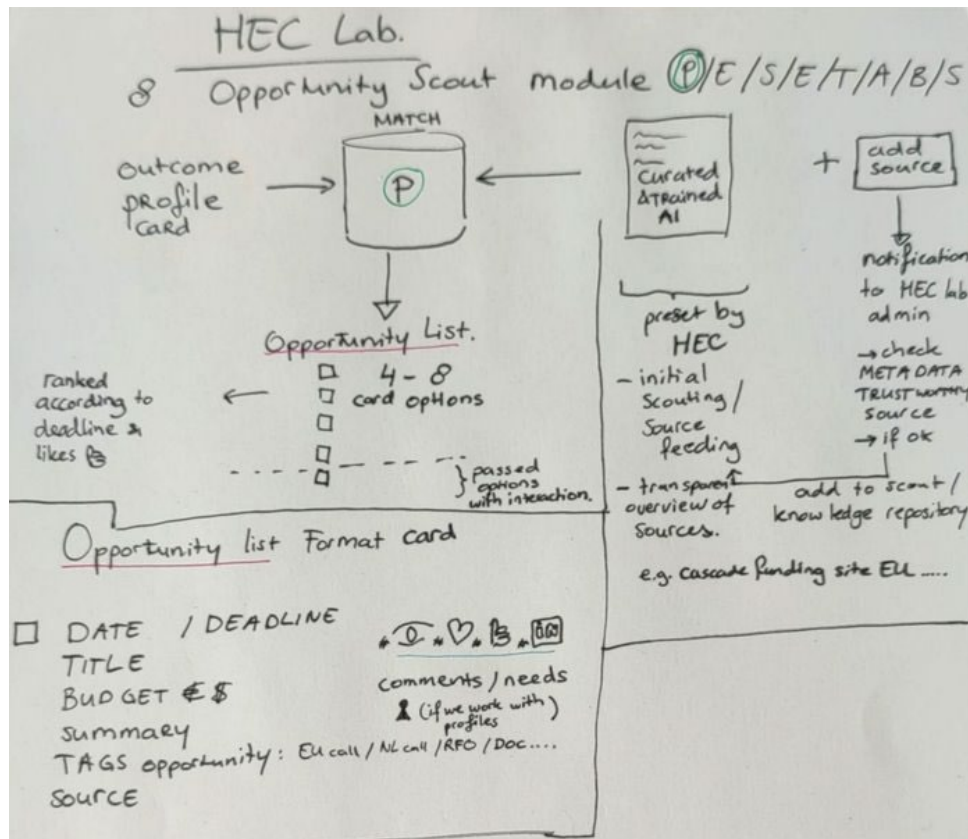 HEC Lab.
8 Opportunity Scout module P/E/S/E/T/A/B/S
MATCH
outcome
profile
card
P
Curated
& TRained
AI
+
add
source
notification
to HEC lab
admin
→ check
META DATA
TRUSTworthy
source
→ if ok
add to scout/
knowledge repository
preset by
HEC
- initial
scouting/
source
feeding
- transparent
overview of
sources.
e.g. cascade funding site EU .....
Opportunity List.
4 - 8
card options
ranked
according to
deadline &
likes
passed
options
with interaction.
Opportunity list Format card
DATE / DEADLINE
TITLE
BUDGET € $
summary
TAGS opportunity: EU call / NL call / RFO / Doc....
source
in
comments / needs
(if we work with
profiles)